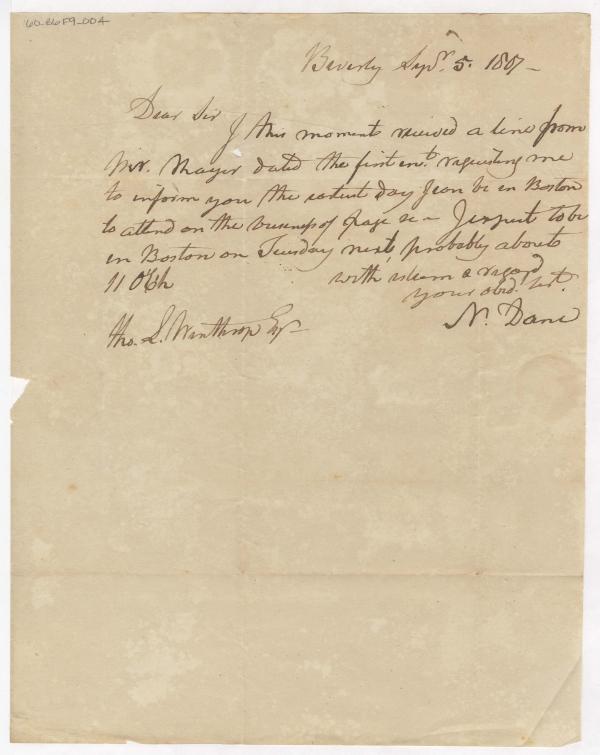 60-66F9-004
Beverly Sepr. 5. 1807-
Dear Sir
I this moment received a line from
Mr. Thayer dated the first int. requesting me
to inform you the earliest Day I can be in Boston
to attend on the business of Page &c - I expect to be
in Boston on Tuesday next, probably about
11 oClk
with esteem & regard
your obd. sert.
N. Dane
Tho. L. Winthrop Esqr